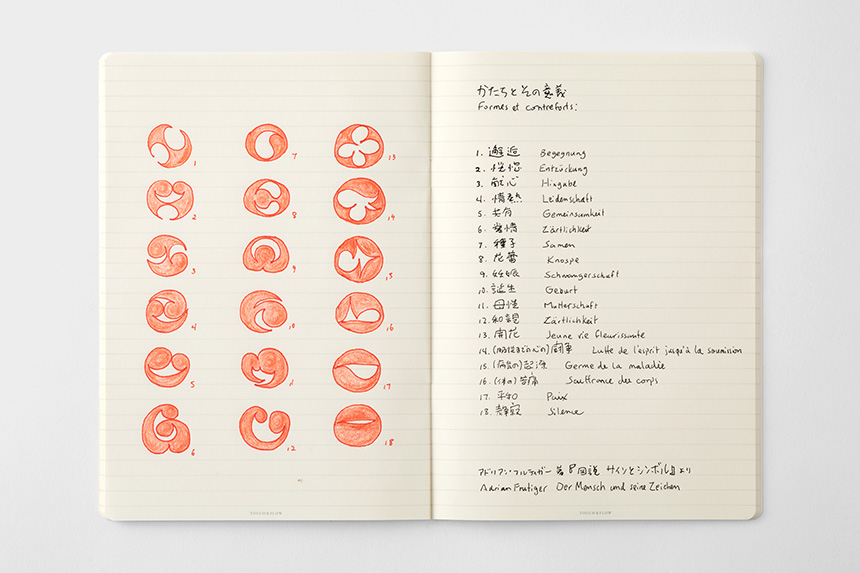 1
7
13
2
8
14
3
9
15
4
10
16
5
17
6
12
18
TOUCH&FLOW
かたちとその意義
Formes et contreforts:
1. 邂逅 Begegnung
2. 恍惚 Entzückung
3. 献心 Hingabe
4. 情熱 Leidenschaft
5. 共有 Gemeinsamkeit
6. Zärtlichkeit
7. 種子 Samen
8. 花蕾 Knospe
9. 妊娠 Schwangerschaft
10. 誕生 Geburt
11. 母性 Mutterschaft
12. Zärtlichkeit
13. 開花 Jeune vie fleurissante
14. (服従までの心の) Lutte de l'esprit jusqu'à la soumission
15. (病気の)起源 Germe de la maladie
16. (体の)苦痛 Souffrance du corps
17. 平和 Paix
18. 静寂 Silence
アドリアン・フルティガー 著『図説 サインとシンボル』より
Adrian Frutiger Der Mensch und seine Zeichen
TOUCH&FLOW